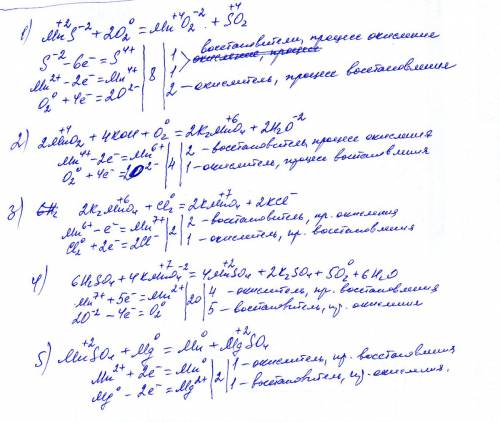 +2 +4 +4
1) MnS⁻² + 2O₂⁰ = MnO₂⁻² + SO₂
S⁻² - 6e⁻ = S⁴⁺ | 8 | 1 > восстановители, процесс окисления
Mn²⁺ - 2e⁻ = Mn⁴⁺ | | 1 окисление, процесс
O₂⁰ + 4e⁻ = 2O²⁻ | | 2 - окислитель, процесс восстановления
+4 +6
2) 2MnO₂ + 4KOH + O₂⁰ = 2K₂MnO₄ + 2H₂O⁻²
Mn⁴⁺ - 2e⁻ = Mn⁶⁺ | 4 | 2 - восстановитель, процесс окисления
O₂⁰ + 4e⁻ = 2O²⁻ | | 1 - окислитель, процесс восстановления
+6 +7
3) 2K₂MnO₄ + Cl₂⁰ = 2KMnO₄ + 2KCl⁻
Mn⁶⁺ - e⁻ = Mn⁷⁺ | 2 | 2 - восстановитель, пр. окисления
Cl₂⁰ + 2e⁻ = 2Cl⁻ | | 1 - окислитель, пр. восстановления
+7 -2 +2 0
4) 6H₂SO₄ + 4KMnO₄ = 4MnSO₄ + 2K₂SO₄ + 5O₂ + 6H₂O
Mn⁷⁺ + 5e⁻ = Mn²⁺ | 20 | 4 - окислитель, пр. восстановления
2O⁻² - 4e⁻ = O₂⁰ | | 5 - восстановитель, пр. окисления
+2 +2
5) MnSO₄ + Mg⁰ = Mn⁰ + MgSO₄
Mn²⁺ + 2e⁻ = Mn⁰ | 2 | 1 - окислитель, пр. восстановления
Mg⁰ - 2e⁻ = Mg²⁺ | | 1 - восстановитель, пр. окисления.